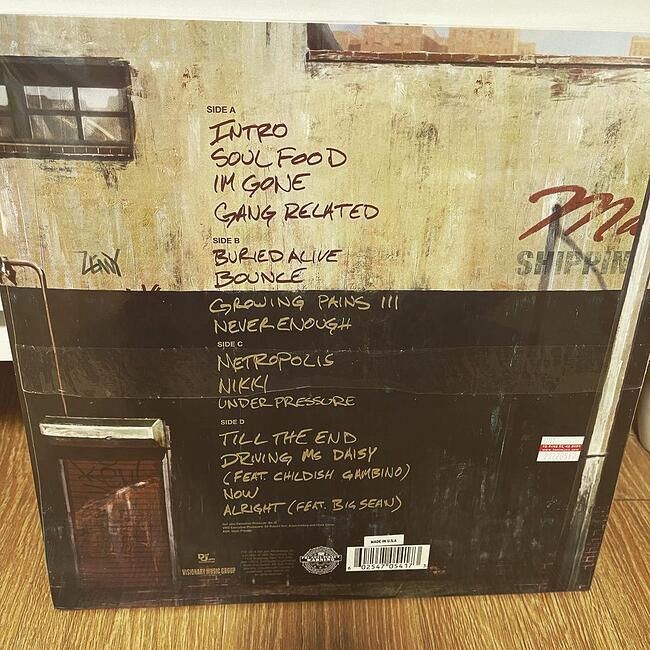 SIDE A
INTRO
SOUL FOOD
IM GONE
GANG RELATED
SIDE B
BURIED ALIVE
BOUNCE
GROWING PAINS III
NEVER ENOUGH
SIDE C
METROPOLIS
NIKKI
UNDER PRESSURE
SIDE D
TILL THE END
DRIVING MS DAISY
(FEAT. CHILDISH GAMBINO)
NOW
ALRIGHT (FEAT. BIG SEAN)
Ma
SHIPPIN
MADE IN U.S.A
VISIONARY MUSIC GROUP
WARNING
6 02547 05417 3